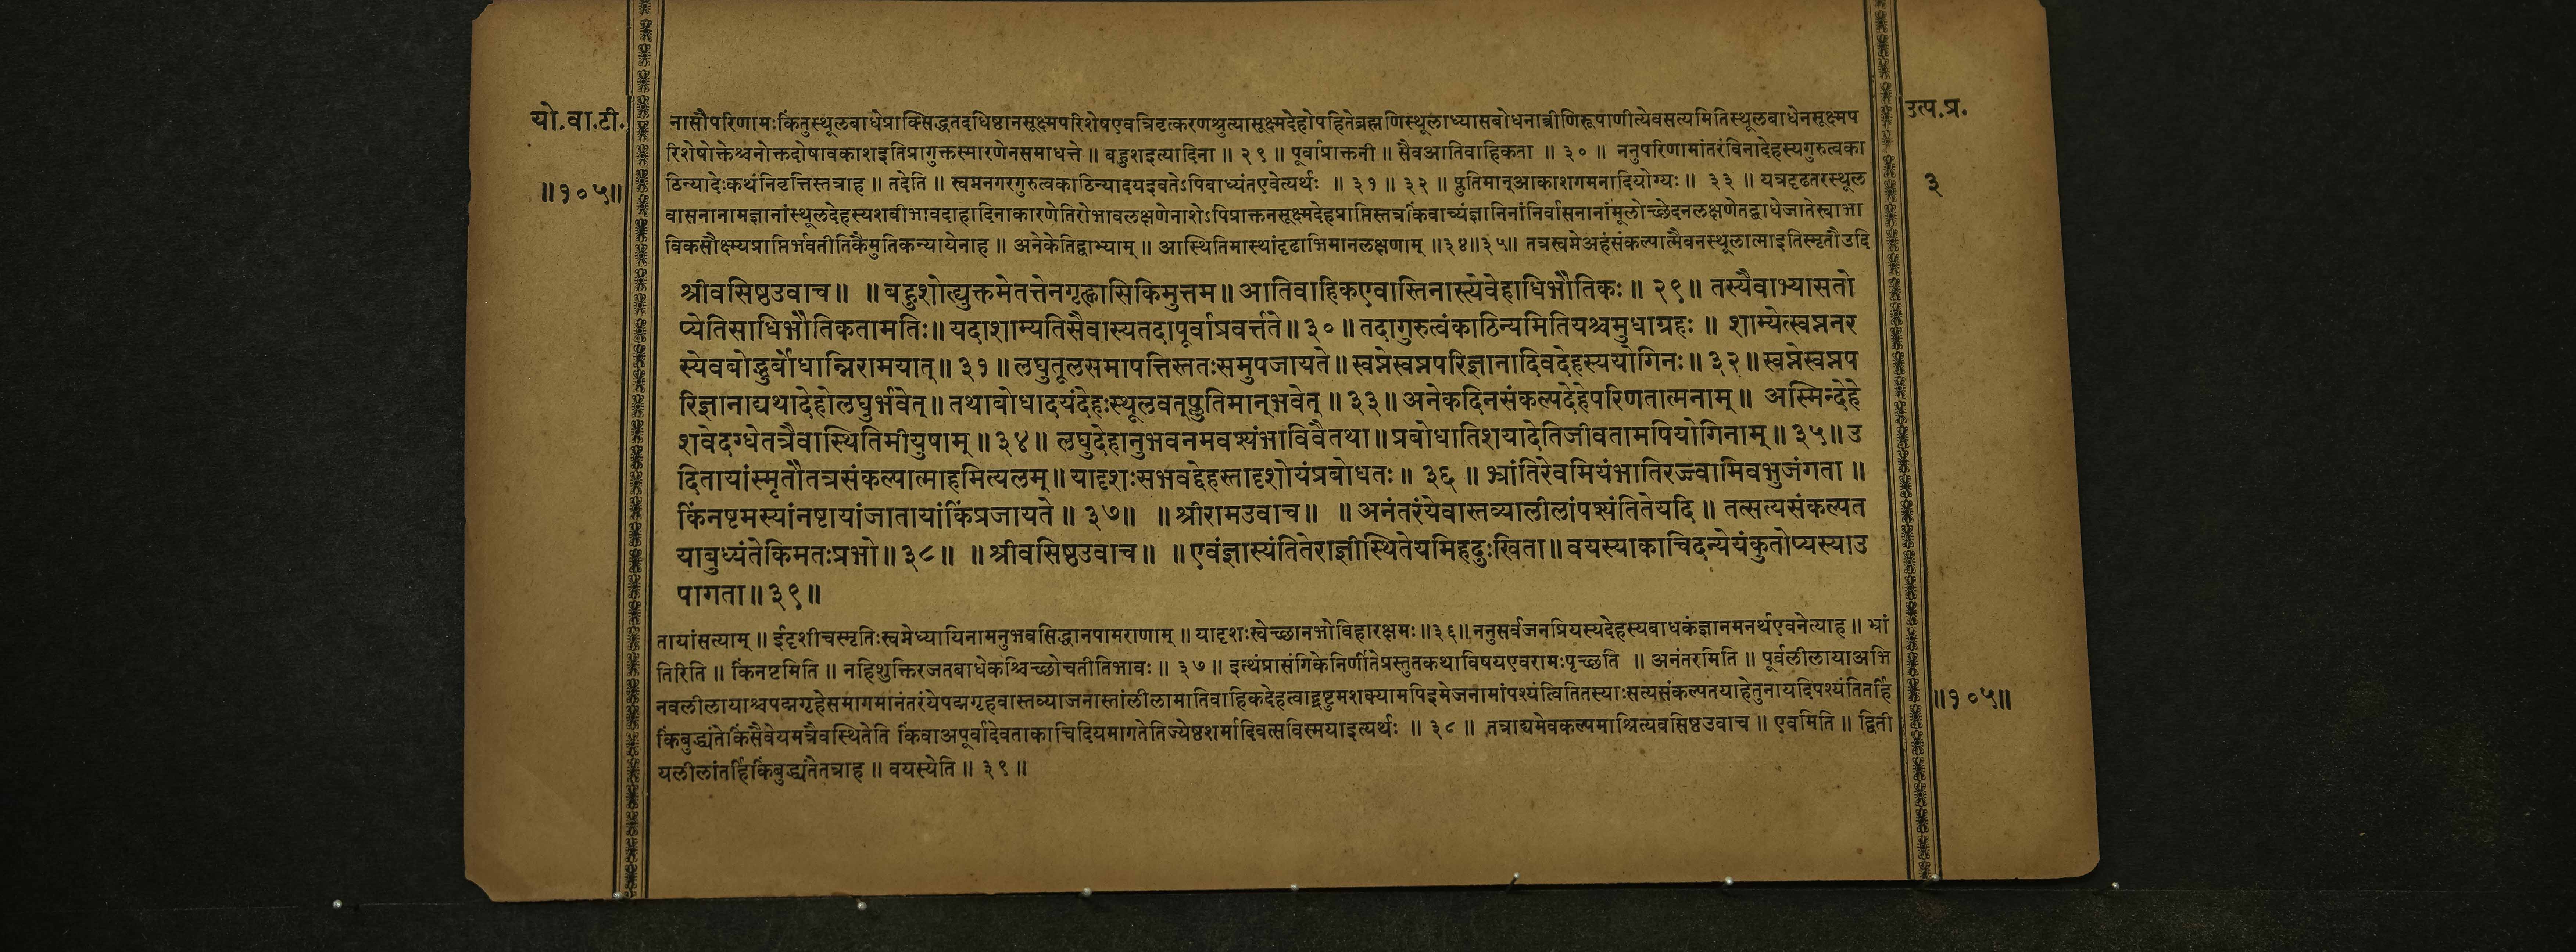 यो.वा.टी.
॥१०५॥
उत्प.प्र.
३
नासौपरिणामःकिंतुस्थूलबाधेप्राक्सिद्धतदधिष्ठानसूक्ष्मपरिशेषएवत्रिवृत्करणश्रुत्यासूक्ष्मदेहोपहितेब्रह्मणिस्थूलाध्यासबोधनात्रीणिरूपाणीत्येवसत्यमितिस्थूलबाधेनसूक्ष्मप
रिशेषोक्तेश्चनोक्तदोषावकाशइतिप्रागुक्तस्मारणेनसमाधत्ते ॥ बहुशइत्यादिना ॥ २९ ॥ पूर्वाप्राक्तनी ॥ सैवआतिवाहिकता ॥ ३० ॥ ननुपरिणामांतरंविनादेहस्यगुरुत्वका
ठिन्यादेःकथंनिवृत्तिस्तत्राह ॥ तदेति ॥ स्वप्ननगरगुरुत्वकाठिन्यादयइवतेऽपिबाध्यंतएवेत्यर्थः ॥ ३१ ॥ ३२ ॥ प्लुतिमान्आकाशगमनादियोग्यः ॥ ३३ ॥ यत्रदृढतरस्थूल
वासनानामज्ञानांस्थूलदेहस्यशवीभावदाहादिनाकारणेतिरोभावलक्षणेनाशेऽपिप्राक्तनसूक्ष्मदेहप्राप्तिस्तत्रकिंवाच्यंज्ञानिनांनिर्वासनानांमूलोच्छेदनलक्षणेतद्बाधेजातेस्वाभा
विकसौक्ष्म्यप्राप्तिर्भवतीतिकैमुतिकन्यायेनाह ॥ अनेकेतिद्वाभ्याम् ॥ आस्थितिमास्थांदृढाभिमानलक्षणाम् ॥३४॥३५॥ तत्रस्वप्नेअहंसंकल्पात्मैवनस्थूलात्माइतिस्मृतौउदि
श्रीवसिष्ठउवाच॥ ॥ बहुशोत्द्युक्तमेतत्तेनगृह्णासिकिमुत्तम॥ आतिवाहिकएवास्तिनास्त्येवेहाधिभौतिकः॥ २९॥ तस्यैवाभ्यासतो
प्येतिसाधिभौतिकतामतिः॥ यदाशाम्यतिसैवास्यतदापूर्वाप्रवर्त्तते॥ ३०॥ तदागुरुत्वंकाठिन्यमितियश्चमुधाग्रहः ॥ शाम्येत्स्वप्ननर
स्येवबोद्धुर्बोधान्निरामयात्॥ ३१॥ लघुतूलसमापत्तिस्ततःसमुपजायते॥ स्वप्नेस्वप्नपरिज्ञानादिवदेहस्ययोगिनः॥ ३२॥ स्वप्नेस्वप्नप
रिज्ञानाद्यथादेहोलघुर्भवेत्॥ तथाबोधादयंदेहःस्थूलवत्प्लुतिमान्भवेत् ॥ ३३॥ अनेकदिनसंकल्पदेहेपरिणतात्मनाम्॥ अस्मिन्देहे
शवेदग्धेतत्रैवास्थितिमीयुषाम्॥ ३४॥ लघुदेहानुभवनमवश्यंभाविवैतथा॥ प्रबोधातिशयादेतिजीवतामपियोगिनाम्॥ ३५॥ उ
दितायांस्मृतौतत्रसंकल्पात्माहमित्यलम्॥ यादृशःसभवद्देहस्तादृशोयंप्रबोधतः॥ ३६ ॥ भ्रांतिरेवमियंभातिरज्ज्वामिवभुजंगता ॥
किंनष्टमस्यांनष्टायांजातायांकिंप्रजायते॥ ३७॥ ॥श्रीरामउवाच॥ ॥ अनंतरंयेवास्तव्यालीलांपश्यंतितेयदि॥ तत्सत्यसंकल्पत
याबुध्यंतेकिमतःप्रभो॥३८॥ ॥श्रीवसिष्ठउवाच॥ ॥एवंज्ञास्यंतितेराज्ञीस्थितेयमिहदुःखिता॥ वयस्याकाचिदन्येयंकुतोप्यस्याउ
पागता॥३९॥
तायांसत्याम् ॥ ईदृशीचस्मृतिःस्वप्नेध्यायिनामनुभवसिद्धानपामराणाम् ॥ यादृशःस्वेच्छानभोविहारक्षमः॥३६॥ ननुसर्वजनप्रियस्यदेहस्यबाधकंज्ञानमनर्थएवनेत्याह ॥ भ्रां
तिरिति ॥ किंनष्टमिति ॥ नहिशुक्तिरजतबाधेकश्चिच्छोचतीतिभावः ॥ ३७ ॥ इत्थंप्रासंगिकेनिर्णीतेप्रस्तुतकथाविषयएवरामःपृच्छति ॥ अनंतरमिति ॥ पूर्वलीलायाअभि
नवलीलायाश्चपद्मगृहेसमागमानंतरंयेपद्मगृहवास्तव्याजनास्तांलीलामातिवाहिकदेहत्वाद्द्रष्टुमशक्यामपिइमेजनामांपश्यंत्वितितस्याःसत्यसंकल्पतयाहेतुनायदिपश्यंतितर्हि
किंबुद्ध्यंतेकिंसैवेयमत्रैवस्थितेति किंवाअपूर्वादेवताकाचिदियमागतेतिज्येष्ठशर्मादिवत्सविस्मयाइत्यर्थः ॥ ३८ ॥ तत्राद्यमेवकल्पमाश्रित्यवसिष्ठउवाच ॥ एवमिति ॥ द्विती
यलीलांतर्हिकिंबुद्ध्यंतेतत्राह ॥ वयस्येति ॥ ३९ ॥
॥१०५॥